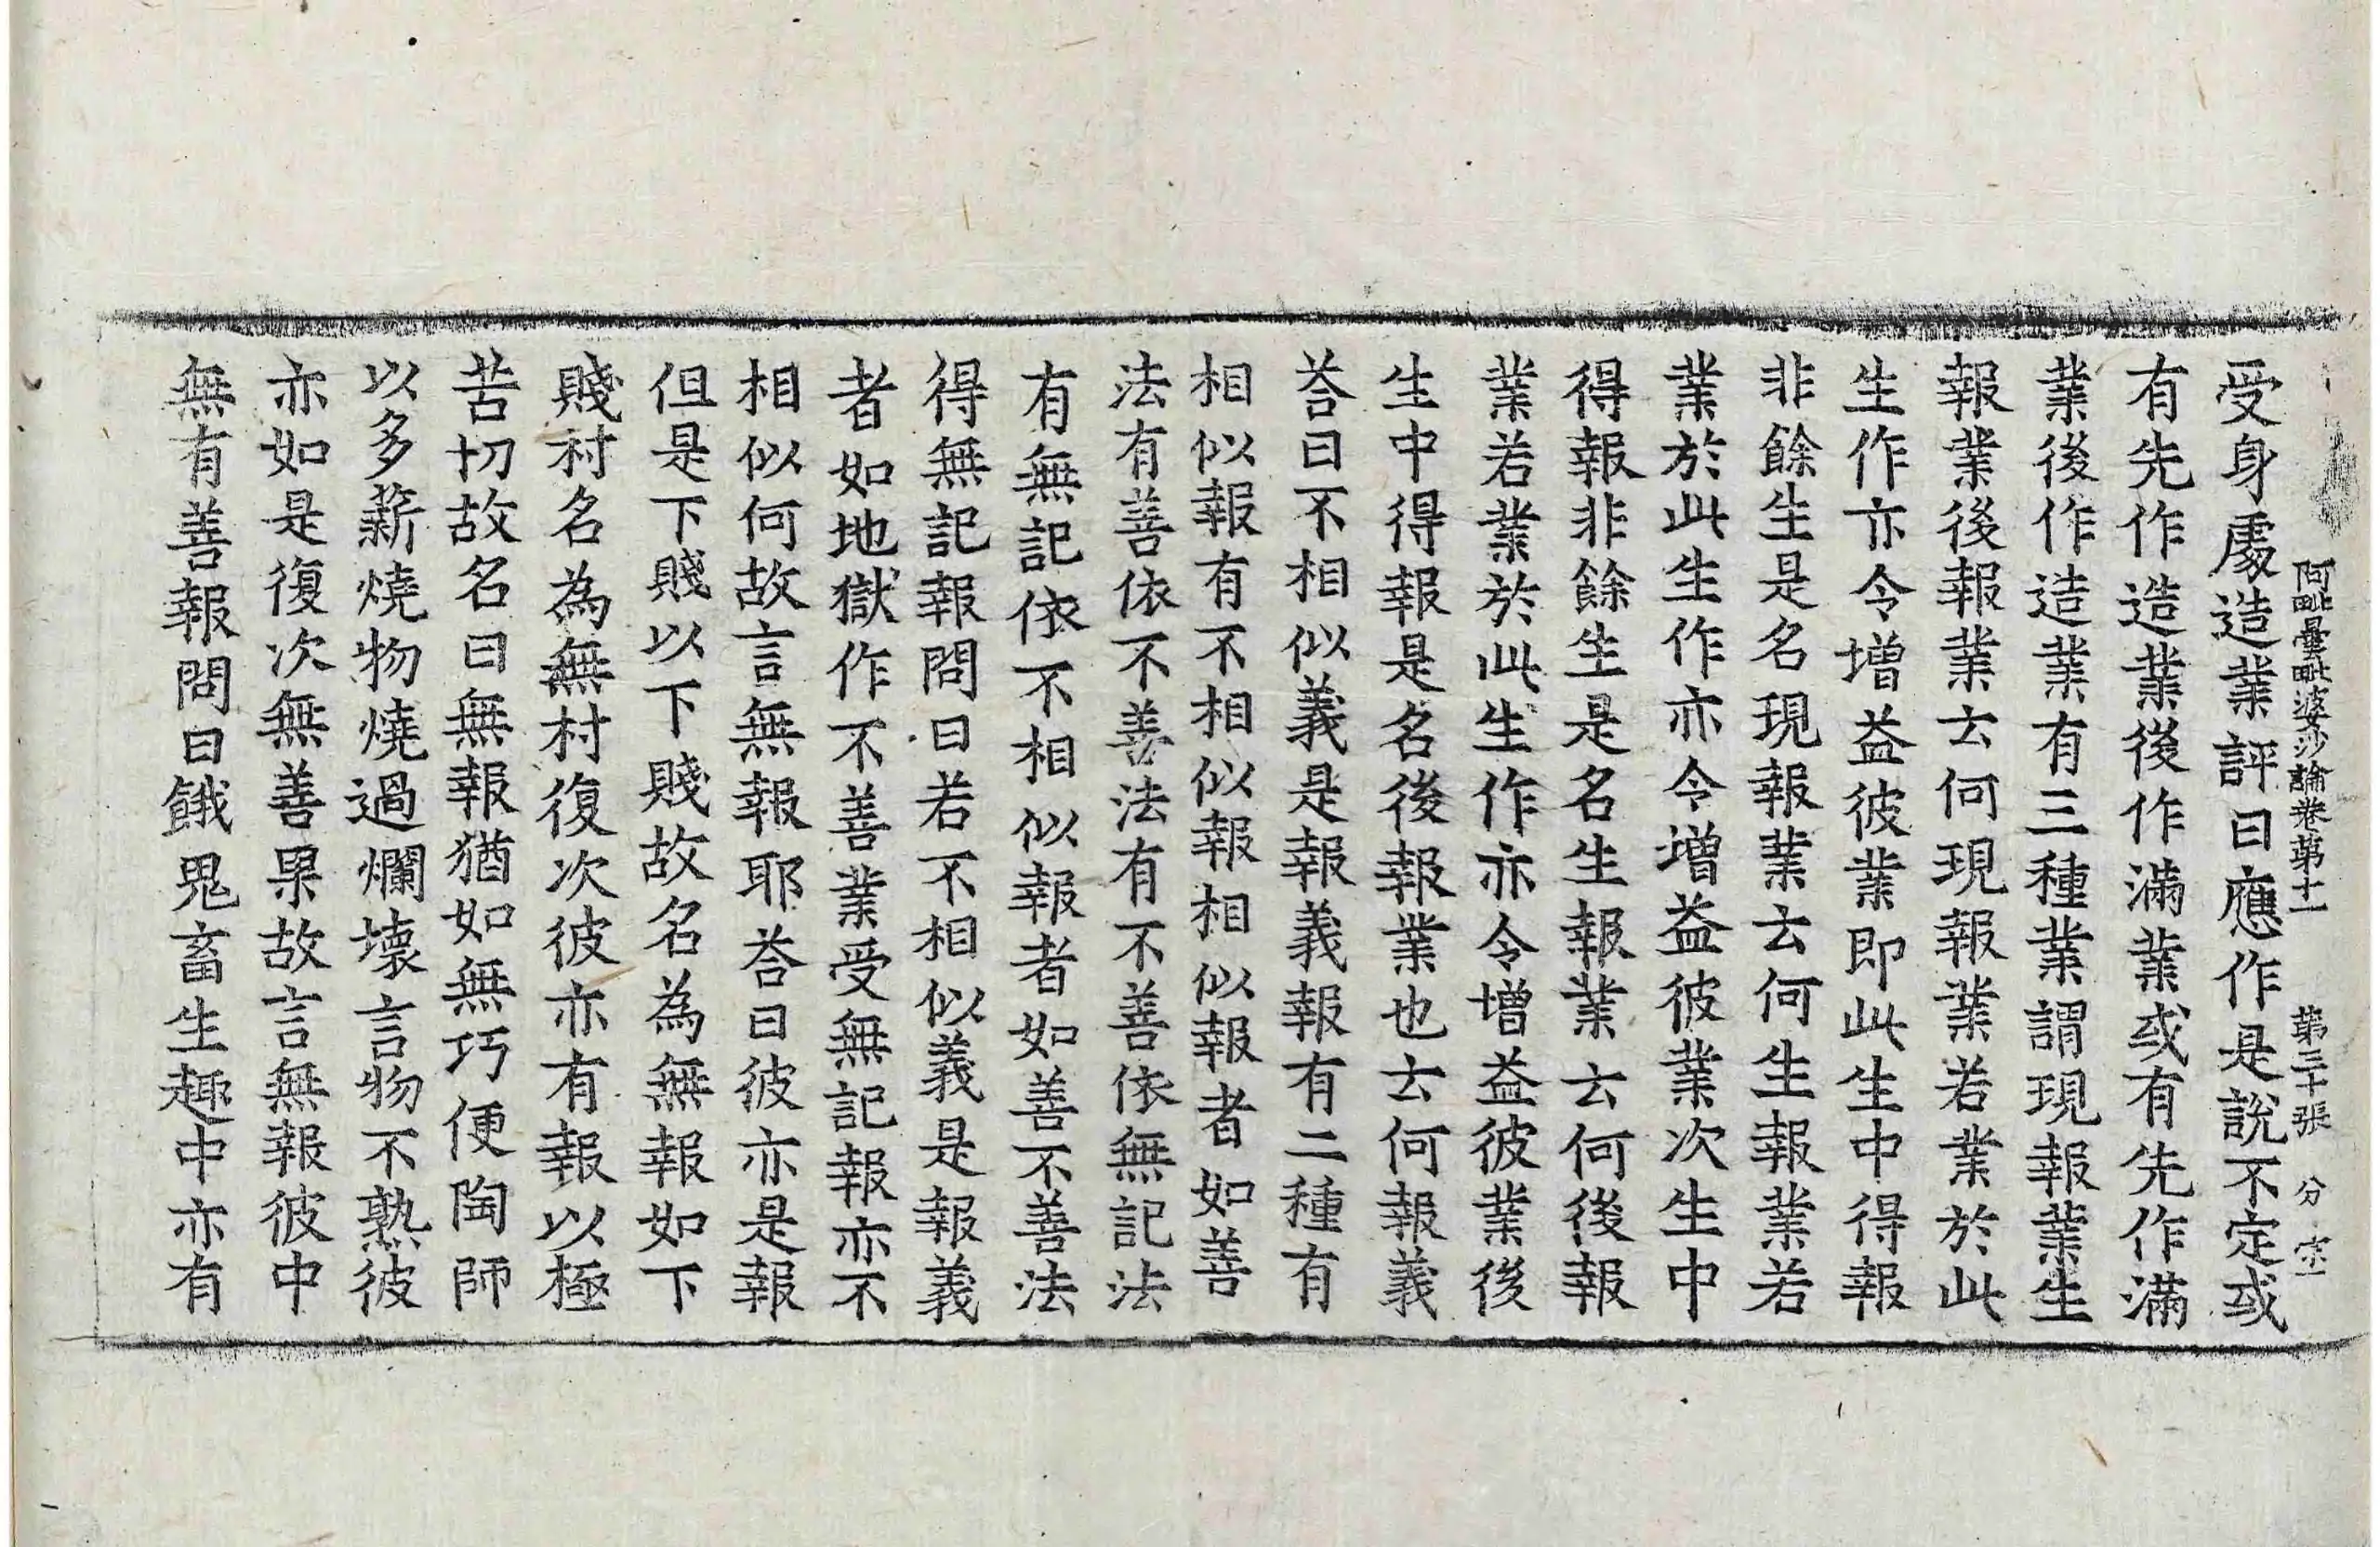 阿毗曇毗婆沙論卷第十一 第三十張 分 宗
受身處造業評曰應作是說不定或
有先作造業後作滿業或有先作滿
業後作造業有三種業謂現報業生
報業後報業云何現報業若業於此
生作亦令增益彼業即此生中得報
非餘生是名現報業云何生報業若
業於此生作亦令增益彼業次生中
得報非餘生是名生報業云何後報
業若業於此生作亦令增益彼業後
生中得報是名後報業也云何報義
荅曰不相似義是報義報有二種有
相似報有不相似報相似報者如善
法有善依不善法有不善依無記法
有無記依不相似報者如善不善法
得無記報問曰若不相似義是報義
者如地獄作不善業受無記報亦不
相似何故言無報耶荅曰彼亦是報
但是下賤以下賤故名為無報如下
賤村名為無村復次彼亦有報以極
苦切故名曰無報猶如無巧便陶師
以多薪燒物燒過爛壞言物不熟彼
亦如是復次無善果故言無報彼中
無有善報問曰餓鬼畜生趣中亦有